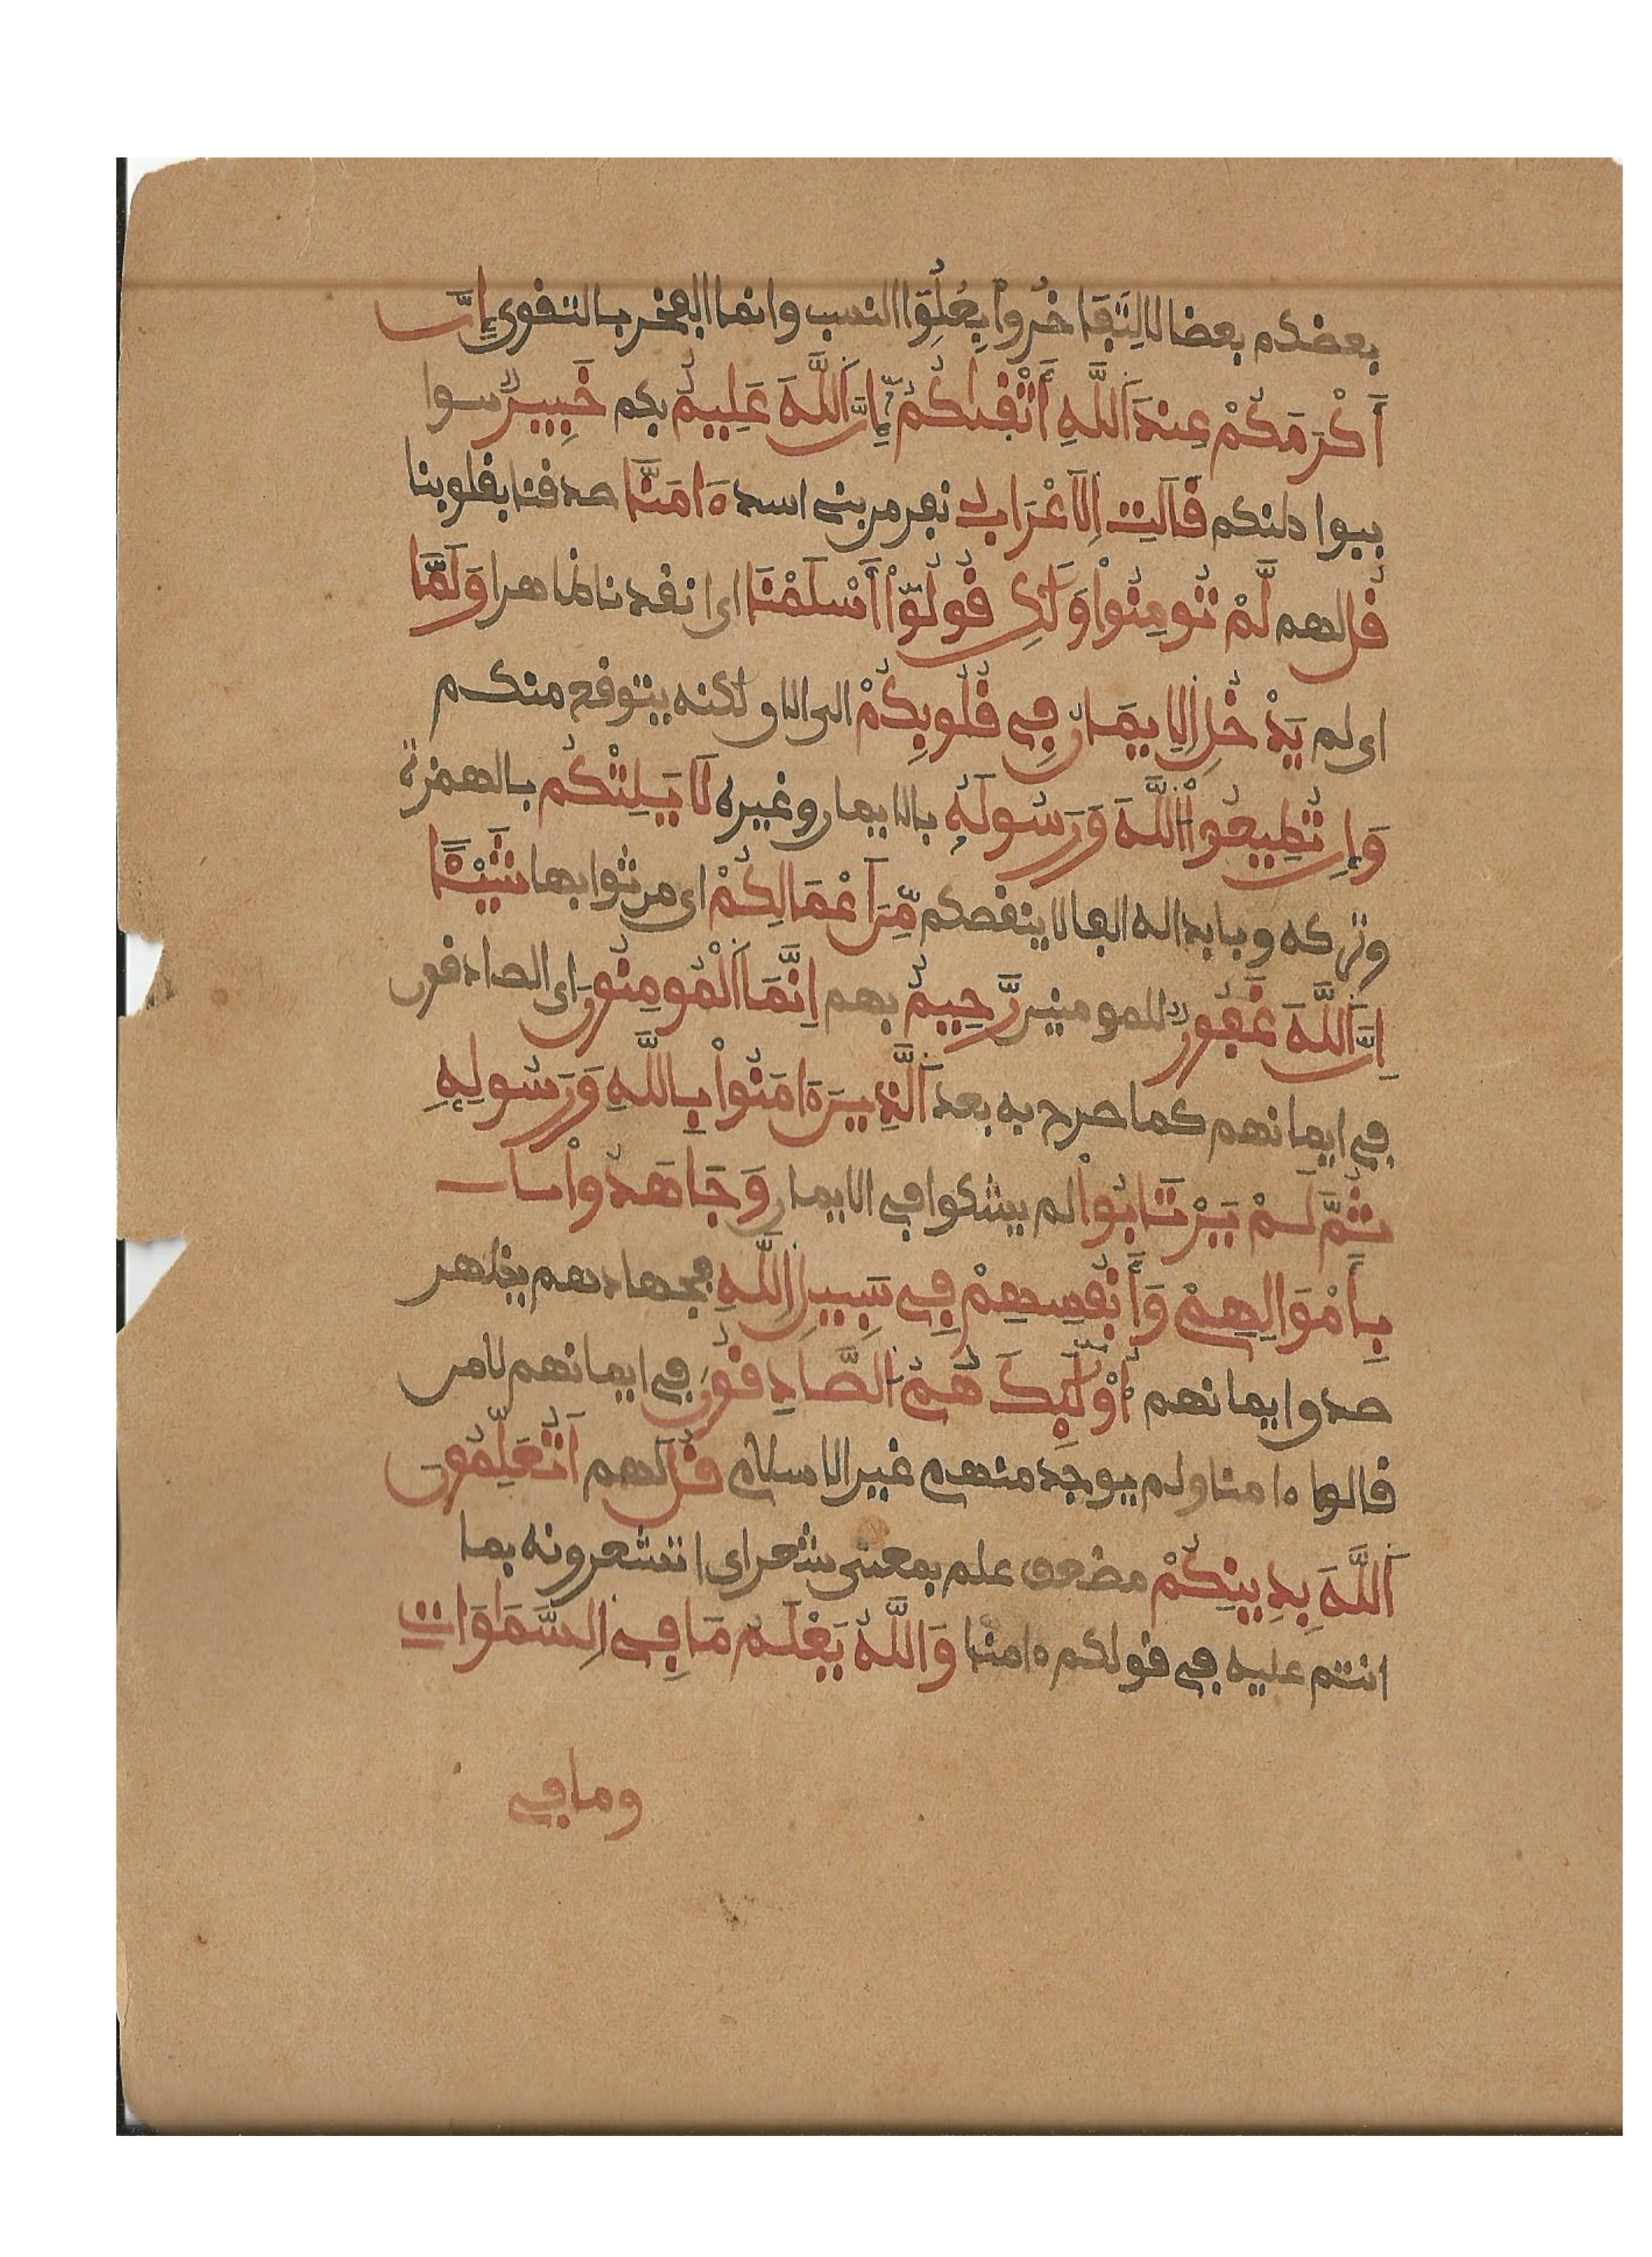 بعضكم بعضا لا لِتَفَاخَرُواْ بِعُلُوِّ النسب وانما الفخر بالتقوى إِنَّ
أَكْرَمَكُمْ عِندَ اَللَّهِ أَتْقَىٰكُمْ إِنَّ اَللَّهَ عَلِيمٌ بكم خَبِيرٌ سوا
ببواطنكم قَالَتِ اِلَاعْرَابُ نفر من بني اسد ءَامَنَّا صدقنا بقلوبنا
قُل لهم لَّمْ تُومِنُواْ وَلَٰكِن قُولُوٓاْ أَسْلَمْنَا اى انقدنا ظاهرا وَلَمَّا
اى لم يَدْخُلِ اِلِايمَٰنُ فِے قُلُوبِكُمْ الى الان ولكنه يتوقع منكم
وَإِن تُطِيعُواْ اُللَّهَ وَرَسُولَهُۥ بالايمان وغيره لَا يَلِتْكُم بالهمزة
وتركه وبابداله الفا لا ينقصكم مِّنَ اَعْمَٰلِكُمْ اى من ثوابها شَيْـًٔا
اِنَّ اَللَّهَ غَفُورٌ للمومنين رَّحِيمٌ بهم اِنَّمَا اَلْمُومِنُونَ اى الصادقون
في ايمانهم كما صرح به بعد اَلَّذِينَ ءَامَنُواْ بِاللَّهِ وَرَسُولِهِۦ
ثُمَّ لَمْ يَرْتَابُواْ لم يشكوا في الايمان وَجَاهَدُواْ با
بِأَمْوَالِهِمْ وَأَنفُسِهِمْ فِے سَبِيلِ اِللَّهِ فجهادهم يظهر
صدق ايمانهم أُوْلَٰٓئِكَ هُمُ اُلصَّادِقُونَ في ايمانهم لا من
قالوا ءامنا ولم يوجد منهم غير الاسلام قُلْ لهم أَتُعَلِّمُونَ
اَللَّهَ بِدِينِكُمْ مضعف علم بمعنى شعر اى اتشعرونه بما
انتم عليه في قولكم ءامنا وَاللَّهُ يَعْلَمُ مَا فِے اِلسَّمَٰوَاتِ
وما في